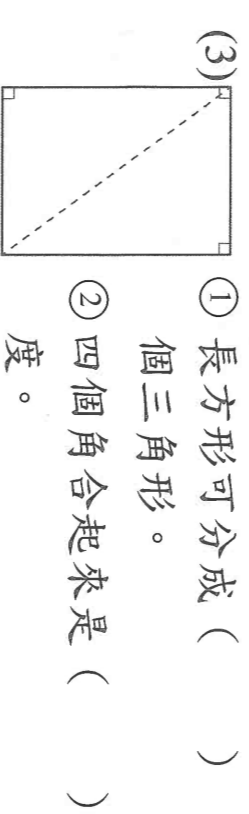 (3)
① 長方形可分成(　　)
個三角形。
② 四個角合起來是(　　)
度。